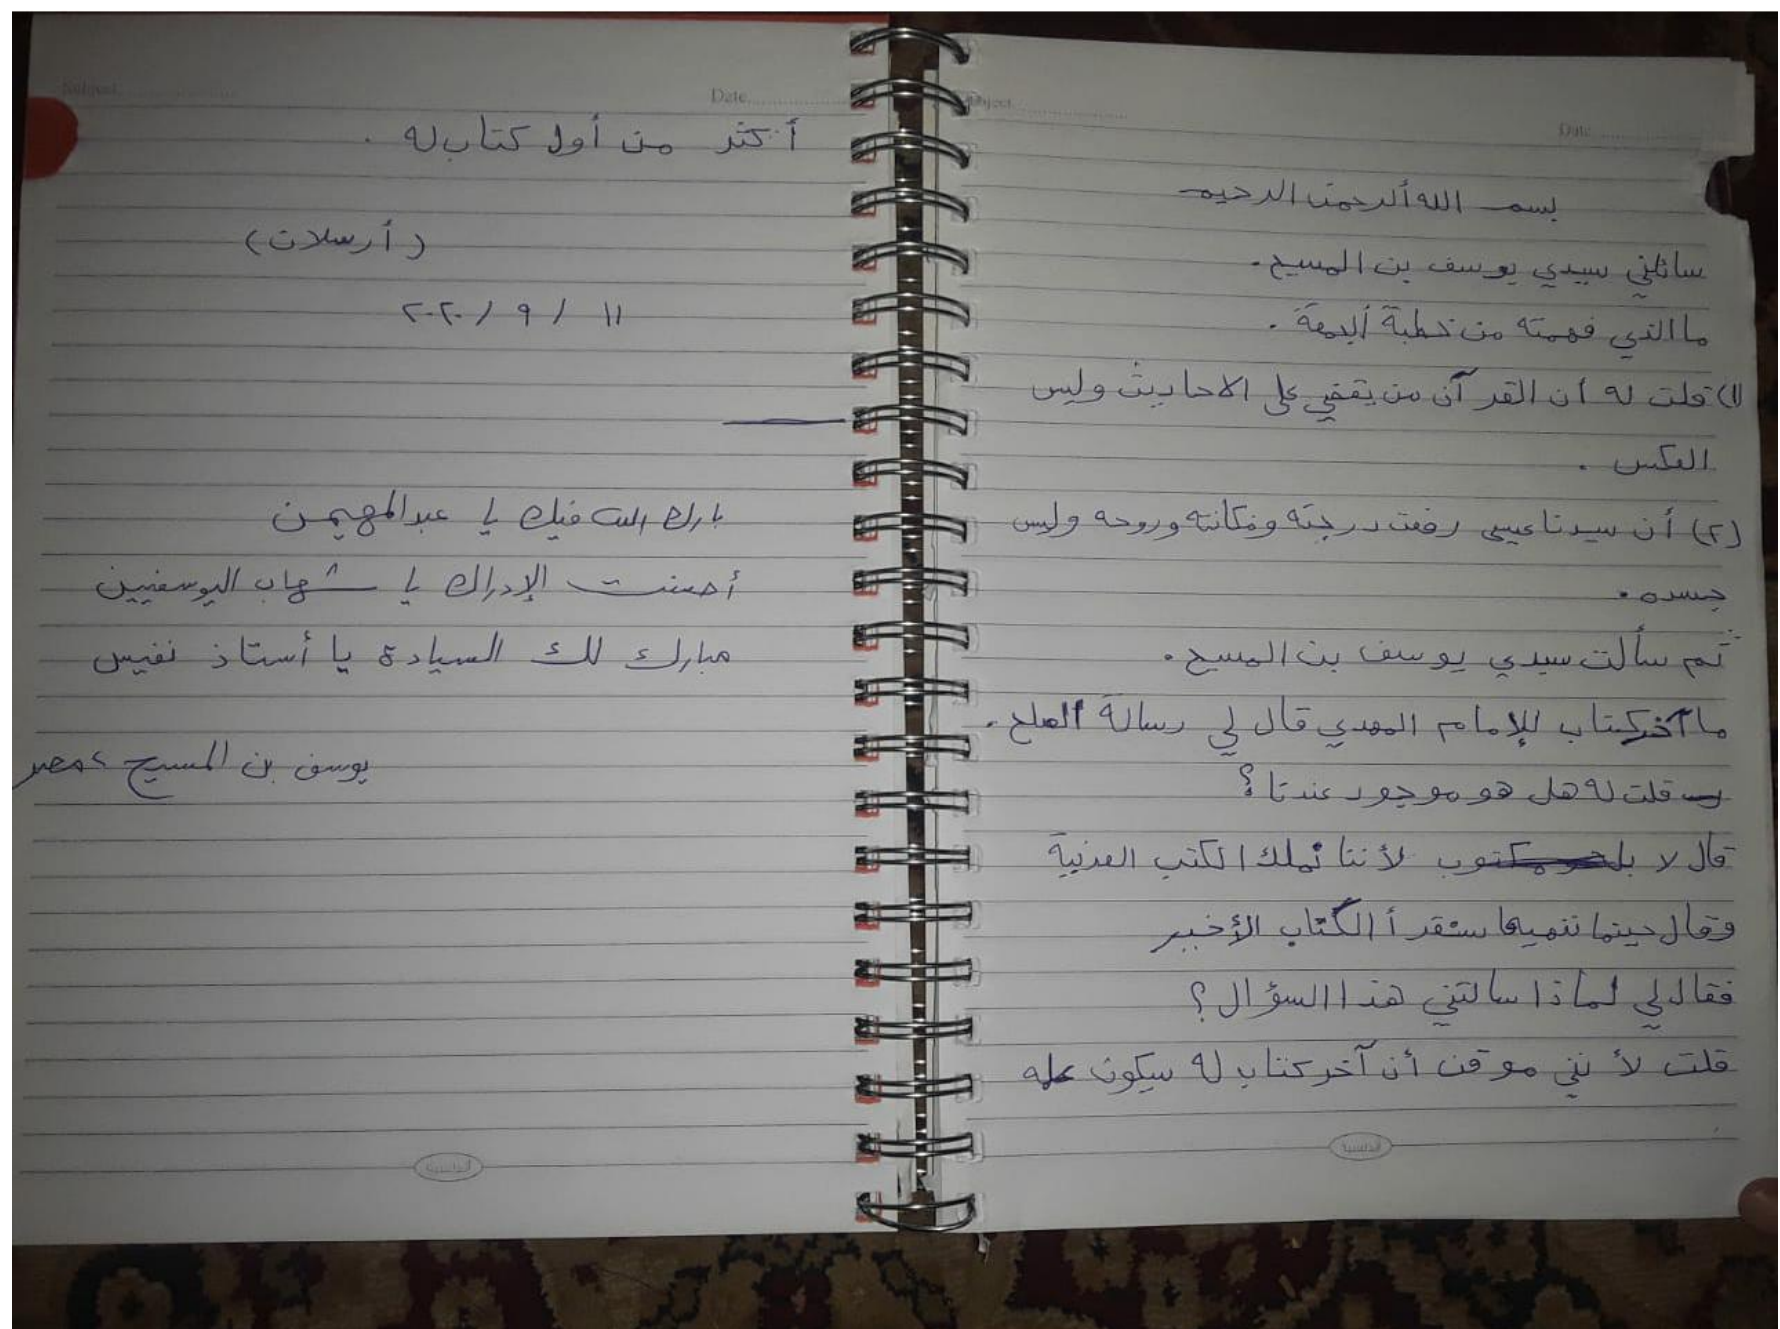 Subject
Date
بسم الله ألرحمن الرحيم
سائلني سيدي يوسف بن المسيح.
ما الذي فهمته من خطبة ألجمعة.
(١) قلت له أن القرآن من يقضي على الاحاديث وليس
العكس.
(٢) أن سيدنا عيسى رفعت درجته ومكانته وروحه وليس
جسده.
ثم سألت سيدي يوسف بن المسيح.
ما آخر كتاب للإمام المهدي قال لي رسالة الصلح.
قلت له هل هو موجود عندنا؟
قال لا لأننا نملك الكتب العربية
وقال حينما ننهيها سنقرأ الكتاب الأخير
فقال لي لماذا سالتني هذا السؤال؟
قلت لأنني موقن أن آخر كتاب له سيكون علمه
Subject
Date
أكثر من أول كتاب له.
(أرسلان)
١١ / ٩ / ٢٠٢٠
بارك الله فيك يا عبدالمهيمن
أحسنت الإدراك يا شهاب اليوسفيين
مبارك لك السيادة يا أستاذ نفيس
يوسف بن المسيح، مصر